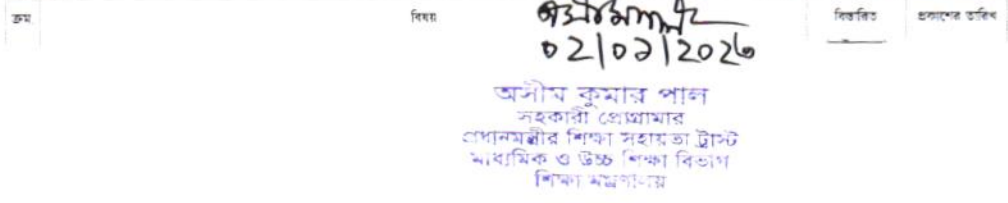 ক্রম বিষয় বিস্তারিত প্রকাশের তারিখ
অসীম কুমার পাল
সহকারী প্রোগ্রামার
প্রধানমন্ত্রীর শিক্ষা সহায়তা ট্রাস্ট
মাধ্যমিক ও উচ্চ শিক্ষা বিভাগ
শিক্ষা মন্ত্রণালয়